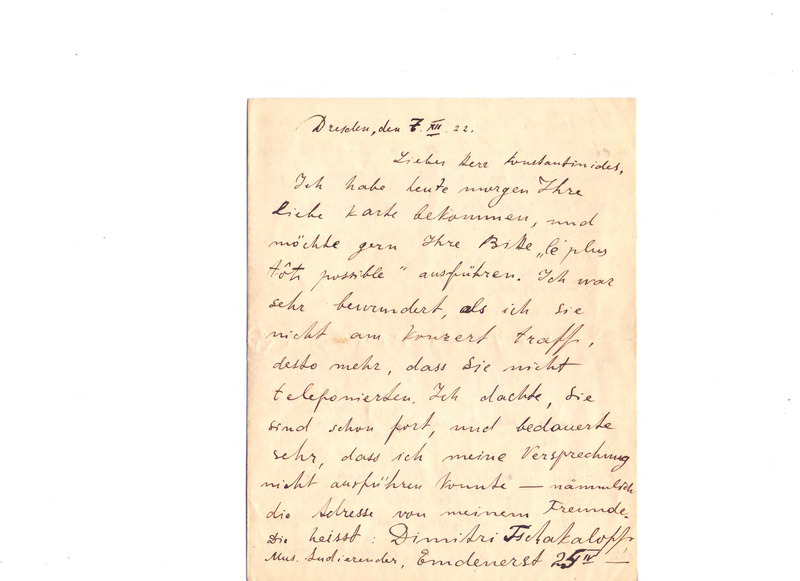 Dresden, den 7. XII. 22.
Lieber Herr Konstantinides,
Ich habe heute morgen Ihre
Liebe Karte bekommen, und
möchte gern Ihre Bitte „lé plus
tôt possible“ ausführen. Ich war
sehr bewundert, als ich Sie
nicht am Konzert traff,
desto mehr, dass Sie nicht
telefonierten. Ich dachte, Sie
sind schon fort, und bedauerte
sehr, dass ich meine Versprechung
nicht ausführen konnte — nämmlich
die Adresse von meinem Freunde.
Sie heisst: Dimitri Tschakaloff,
Mus. Sudierender, Emdenerst 25 IV —